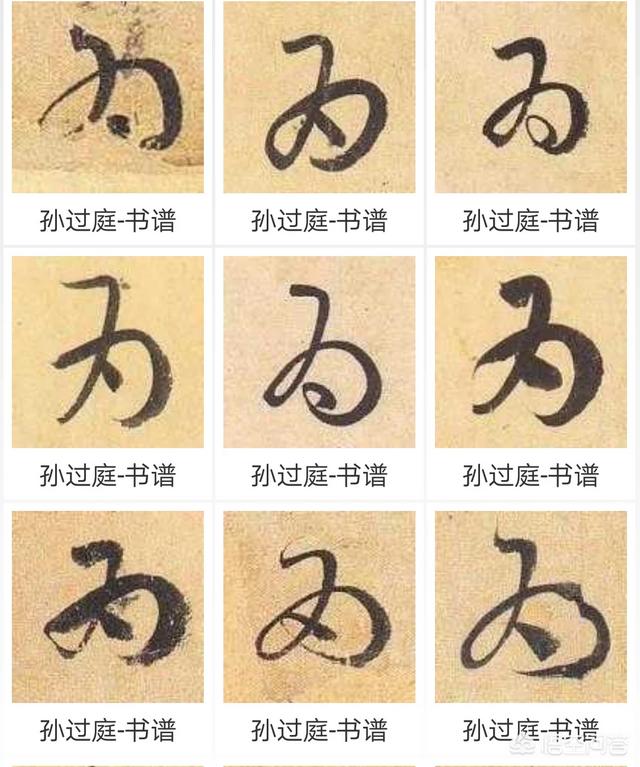 为 为 为
孙过庭-书谱 孙过庭-书谱 孙过庭-书谱
为 为 为
孙过庭-书谱 孙过庭-书谱 孙过庭-书谱
为 为 为
孙过庭-书谱 孙过庭-书谱 孙过庭-书谱
悟空问答